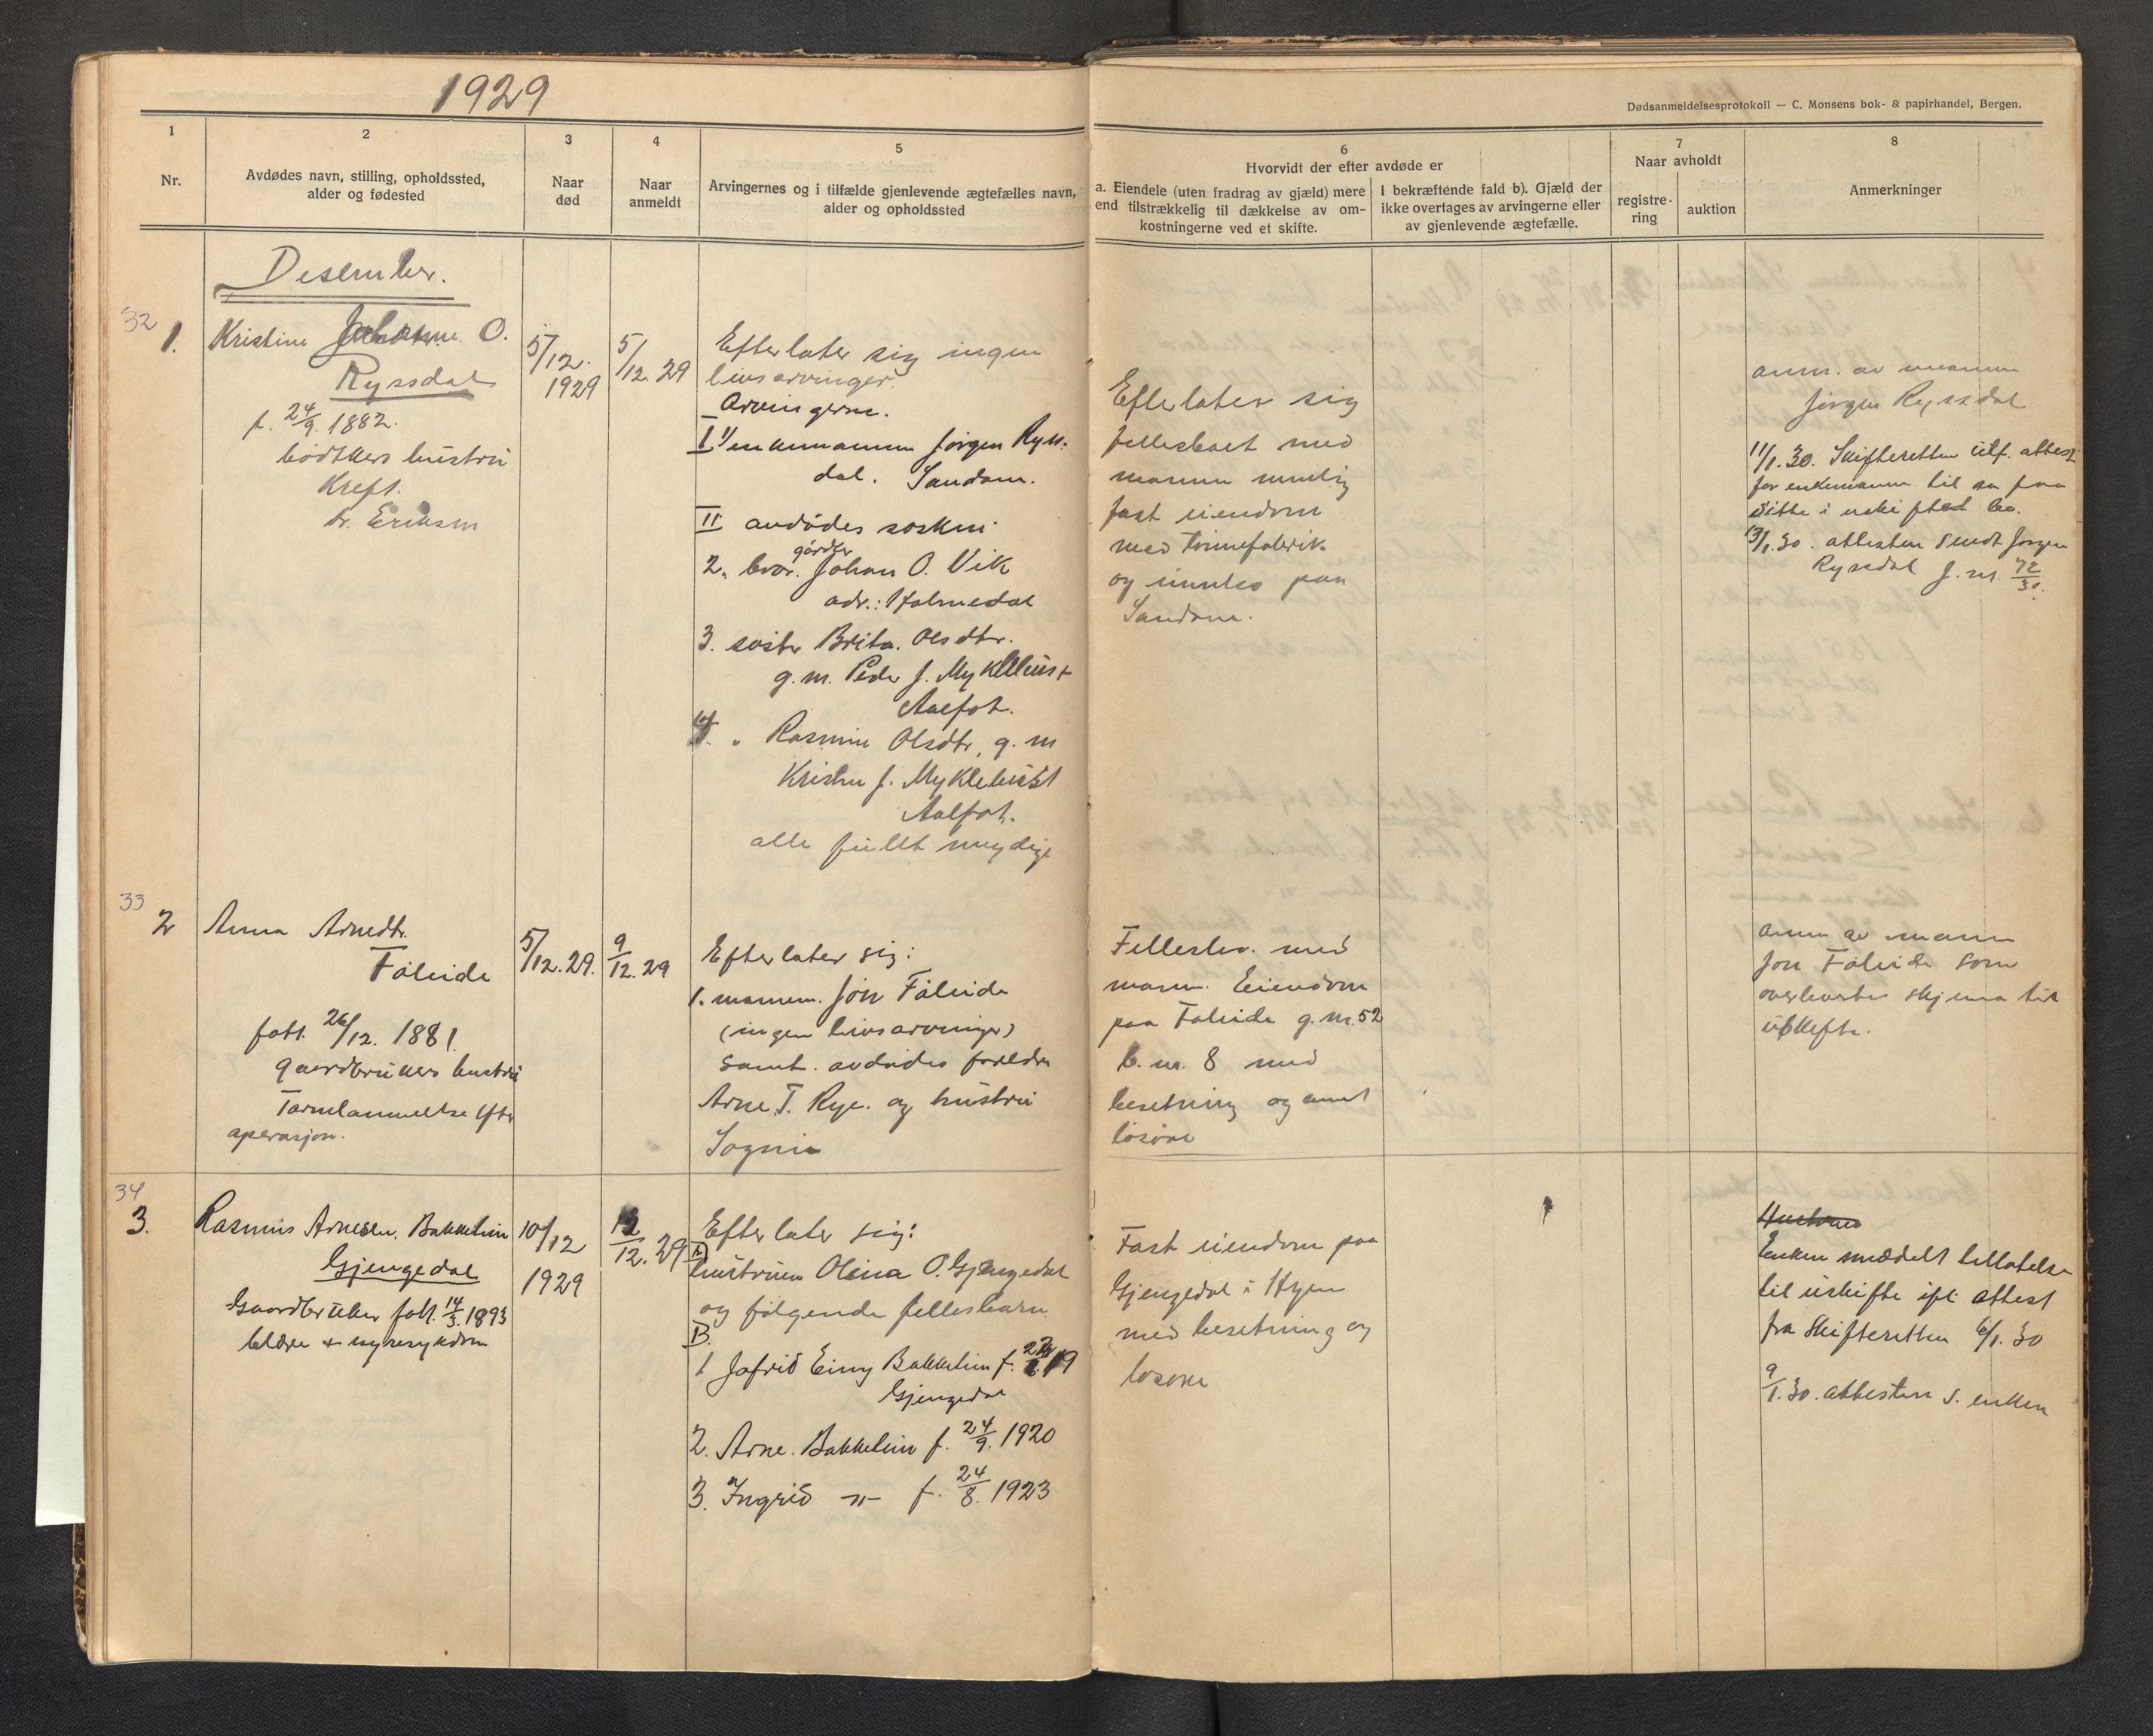 1929
Dødsanmeldelsesprotokoll — C. Monsens bok- & papirhandel, Bergen.
1
Nr.
2
Avdødes navn, stilling, opholdssted,
alder og fødested
3
Naar
død
4
Naar
anmeldt
5
Arvingernes og i tilfælde gjenlevende ægtefælles navn,
alder og opholdssted
6
Hvorvidt der efter avdøde er
a. Eiendele (uten fradrag av gjæld) mere
end tilstrækkelig til dækkelse av om-
kostningerne ved et skifte.
I bekræftende fald b). Gjæld der
ikke overtages av arvingerne eller
av gjenlevende ægtefælle.
7
Naar avholdt
registre-
ring
auktion
8
Anmerkninger
Desember.
32
1.
Kristine O.
Ryssdal
f. 24/9. 1882.
bødtkers hustru
Kreft.
dr. Eriksen
5/12.
1929
5/12. 29
Efterlater sig ingen
livsarvinger.
Arvingerne.
I. 1/ enkemannen Jørgen Ryss-
dal. Sandane.
II avdødes søsken:
2. bror. gårdbr. Johan O. Vik
adr.: Holmedal
3. søster Brita. Olsdtr.
g. m. Peder J. Myklebust
Aalfot.
4. " Rasmine Olsdtr, g. m
Kristen J. Myklebust
Aalfot.
alle fullt myndige
Efterlater sig
fellesboet med
mannen nemlig
fast eiendom
med tønnefabrik
og innbo paa
Sandane.
anm. av mannen
Jørgen Ryssdal
11/1. 30. Skifteretten utf. attest
for enkemannen til aa faa
sitte i uskiftet bo.
13/1. 30. attesten sendt Jørgen
Ryssdal J. nr. 72/30.
33
2
Anna Arnedtr.
Faleide
født. 26/12. 1881.
gaardbrukers hustru
Tarmlammelse efter
operasjon.
5/12. 29.
9/12. 29
Efterlater sig:
1. mannen. Jon Faleide
(ingen livsarvinger)
samt. avdødes foreldre
Arne T. Rye. og hustru
Sogni
Fellesbo. med
mann. Eiendom
paa Faleide g. nr. 52
b. nr. 8 med
besetning og annet
løsøre
anm av mann
Jon Faleide som
skjema til
uskifte.
34
3.
Rasmus Arnesen. Bakkelien
Gjengedal
Gaardbruker født. 14/3. 1893
blære & nyresykdom
10/12
1929
12/12. 29
Efterlater sig:
A)
hustruen Olina O. Gjengedal
og følgende fellesbarn
B.
1 Jofrid Einy Bakkelien f.
Gjengedal
2. Arne. Bakkelien f. 24/9. 1920
3. Ingrid —"— f. 24/8. 1923
Fast eiendom paa
Gjengedal i Hyen
med besetning og
løsøre
Enken meddelt tillatelse
til uskifte ifl. attest
fra Skifteretten 6/1. 30
9/1. 30. attesten s. enken